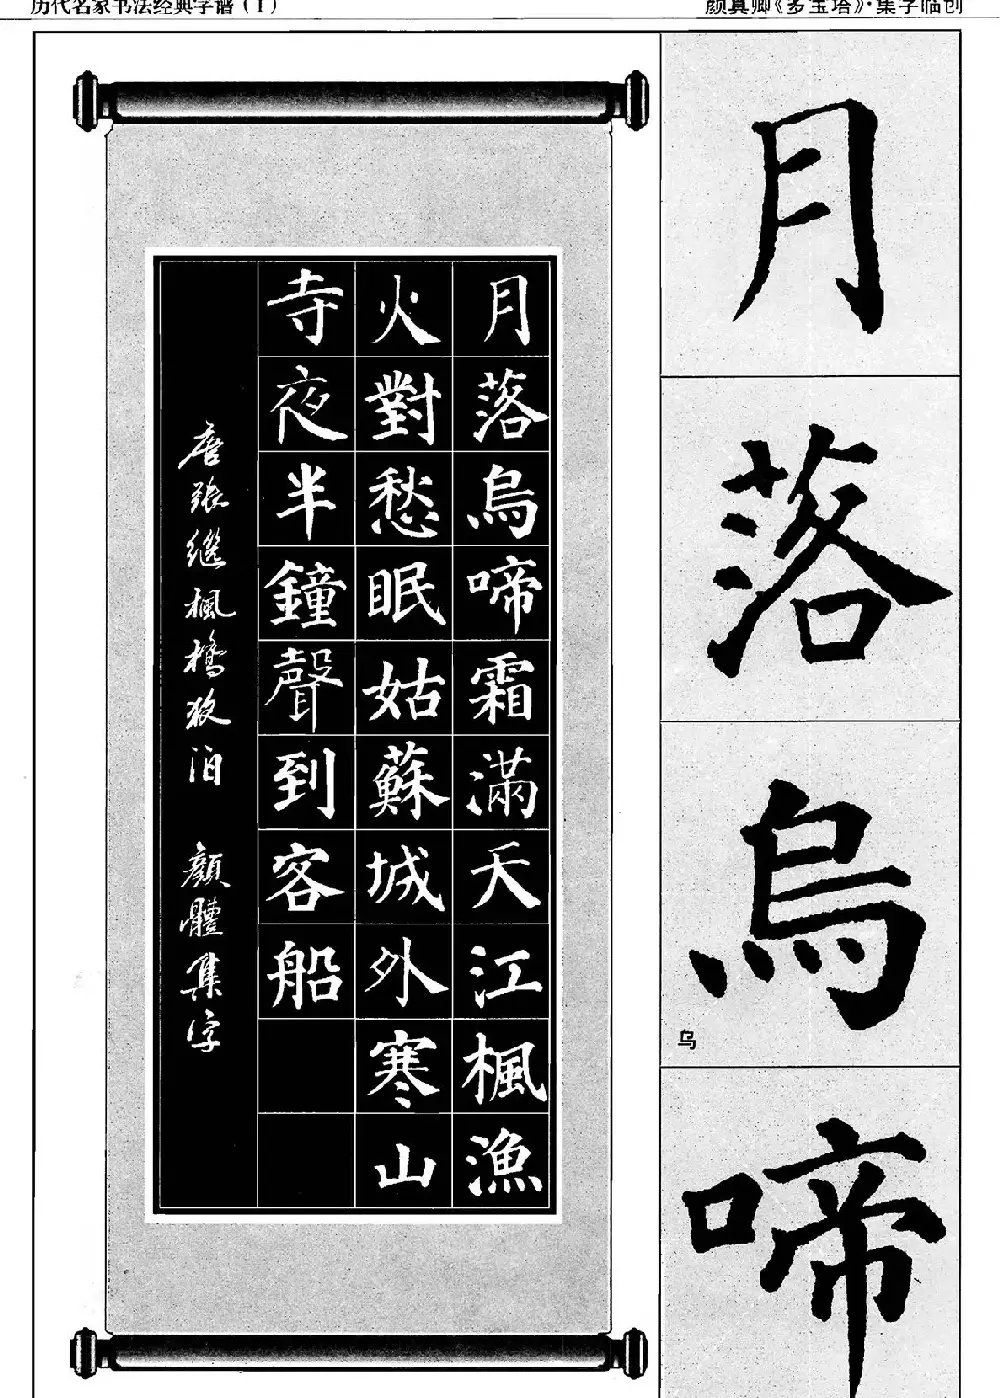 历代名家书法经典字谱(1)
颜真卿《多宝塔》·集字临创
月落烏啼霜滿天江楓漁
火對愁眠姑蘇城外寒山
寺夜半鐘聲到客船
唐張繼楓橋夜泊 顏體集字
月
落
烏
乌
啼